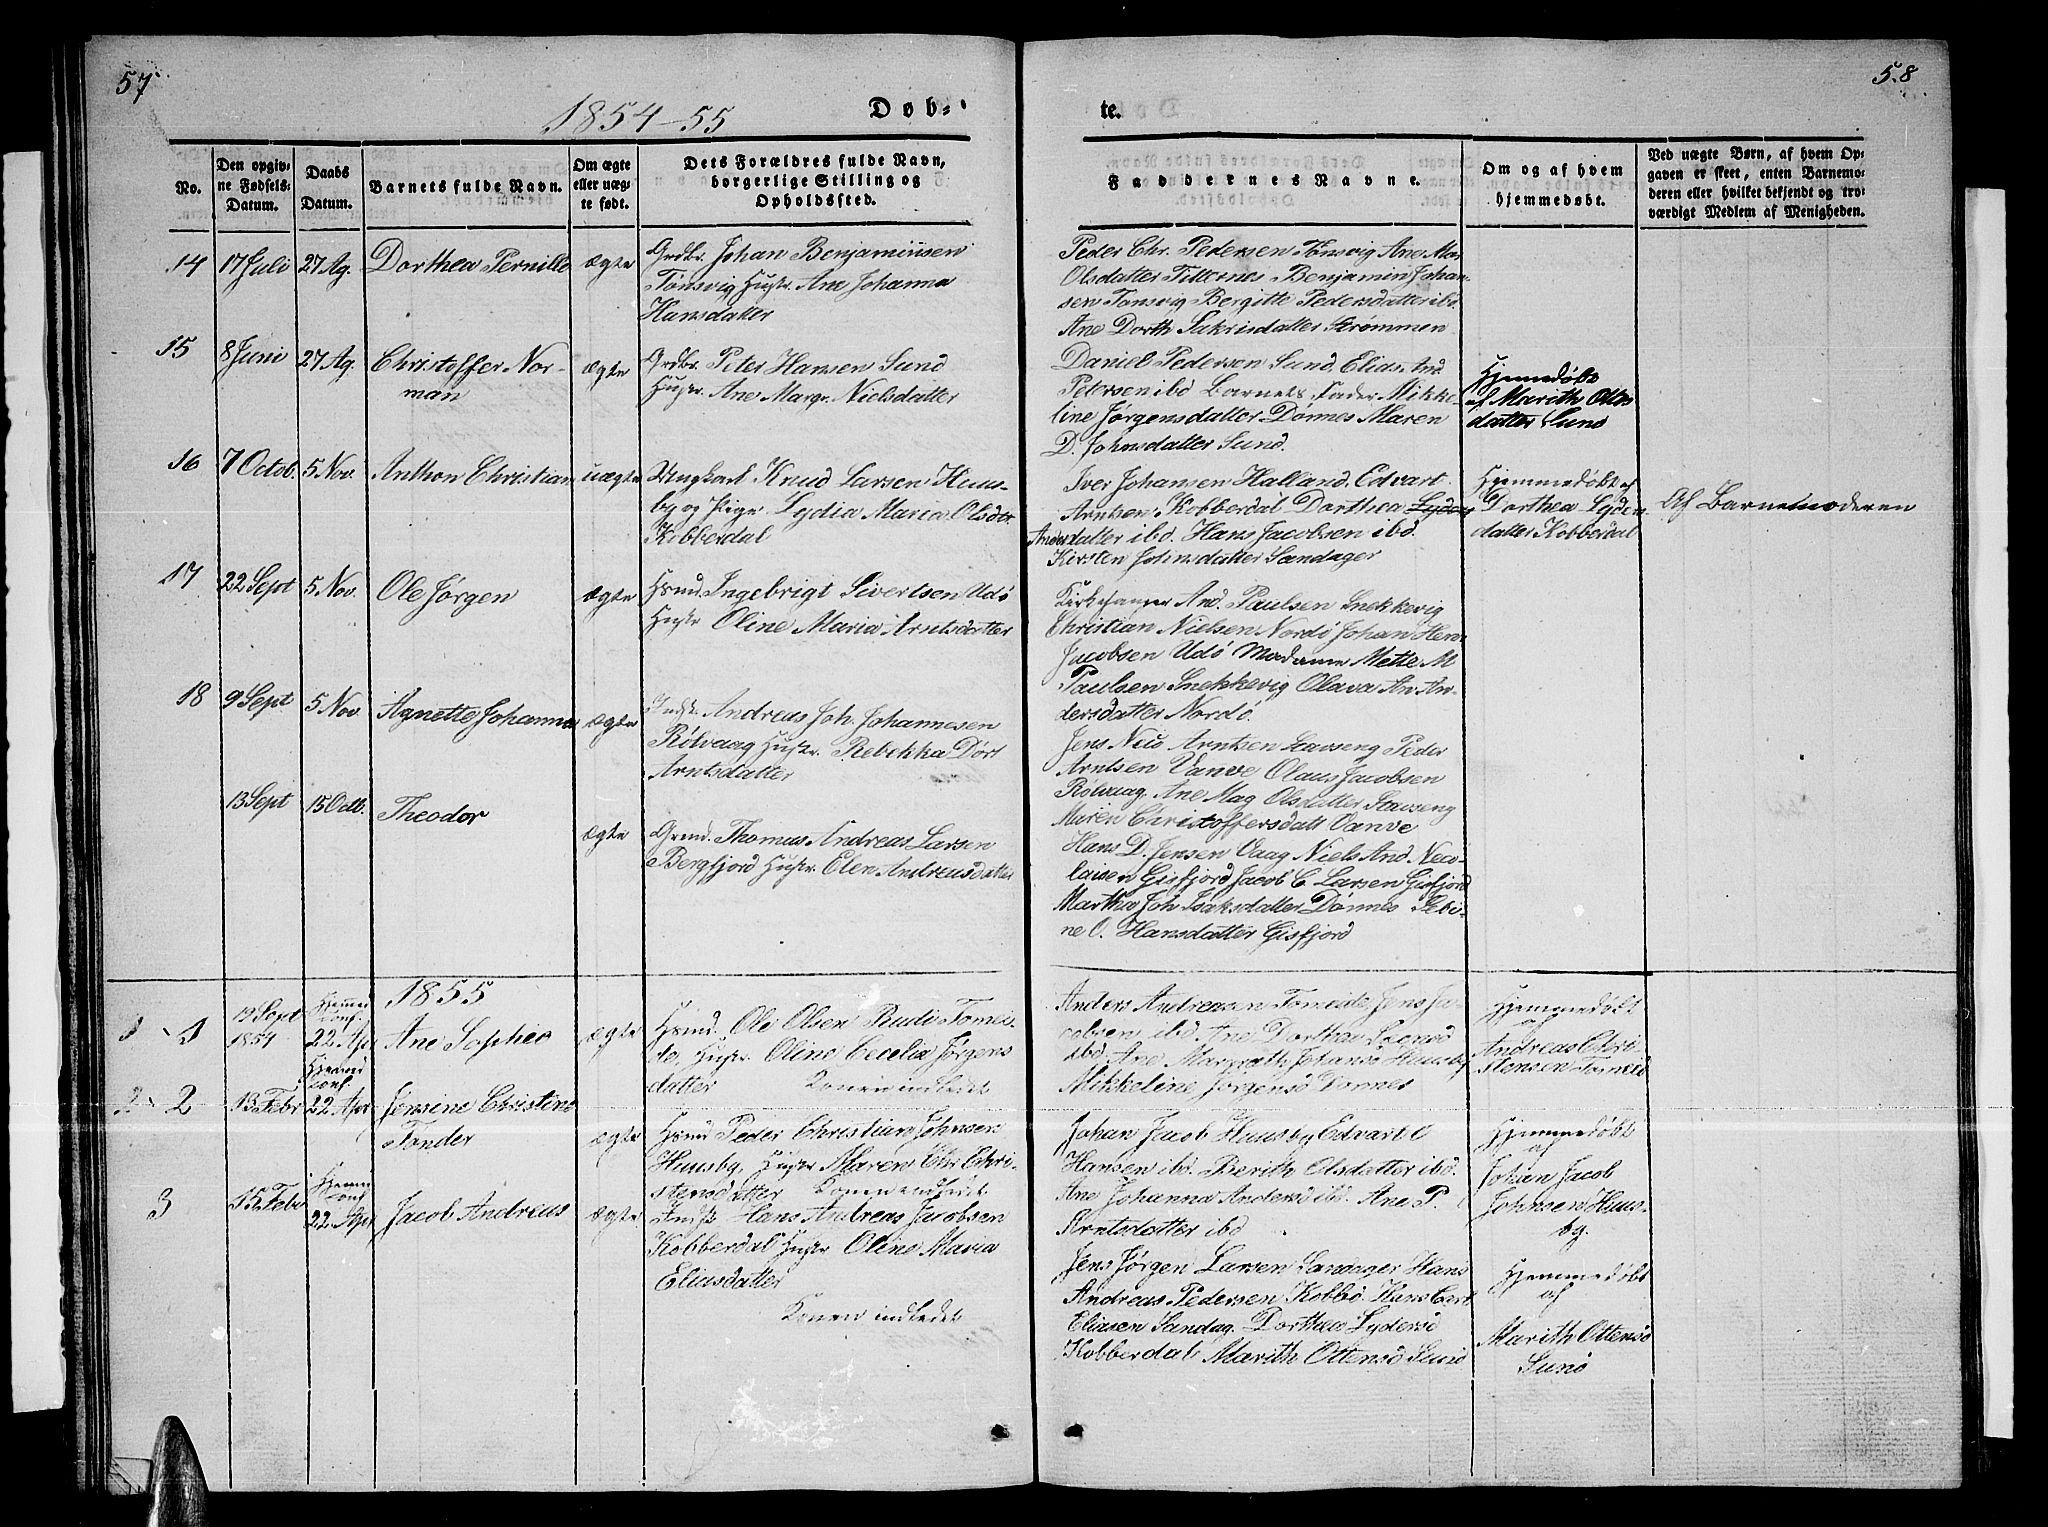 57
1854-55
Døb-
te.
58
No.
Den opgiv-
ne Fødsels-
Datum.
Daabs
Datum.
Barnets fulde Navn.
Om ægte
eller uæg-
te født.
Dets Forældres fulde Navn,
borgerlige Stilling og
Opholdssted.
Faddernes Navne.
Om og af hvem
hjemmedøbt.
Ved uægte Børn, af hvem Op-
gaven er skeet, enten Barnemo-
deren eller hvilket bekjendt og tro-
værdigt Medlem af Menigheden.
14 17 Juli 27 Ag. Dorthea Pernille ægte
Grdbr. Johan Benjaminsen
Tønsvig Hustr. Ane Johanna
Hansdatter
Peder Chr. Pedersen Tønsvig Ane Mar
Olsdatter Titternes Benjamin Johan-
sen Tønsvig Bergitte Pedersdatter ibd.
Ane Dorth Sakrisdatter Strømmen
15 8 Juni 27 Ag. Christoffer Nor-
man
ægte
Grdbr. Peter Hansen Sund
Hustr. Ane Margr. Nielsdatter
Daniel Pedersen Sund Elias And.
Petersen ibd Barnets Fader Mikke-
line Jørgensdatter Dønnes Maren
D. Johnsdatter Sund.
Hjemmedøbt
af Marith Ottes
datter Sund
16 7 Octob. 5 Nov. Anthon Christian uægte
Ungkarl Knud Larsen Huus-
by og Pige Lydia Maria Olsdtr.
Kobberdal
Iver Johansen Halland, Edvart
Arntsen Kobberdal Dorthea Lyders
Anders datter ibd. Hans Jacobsen ibd.
Kirsten Johnsdatter Sandager
Hjemmedøbt af
Dorthea Lyders
datter Kobberdal
Af Barnemoderen
17 22 Sept 5 Nov. Ole Jørgen ægte
Hsmd. Ingebrigt Sivertsen Udø
Hustr Oline Maria Arntsdatter
Kirkesanger And. Paulsen Snekkevig
Christian Nielsen Nordø Johan Henr
Jacobsen Udø Madame Mette M
Paulsen Snekkevig Olava An An-
dersdatter Nordø.
18 9 Sept 5 Nov Agnette Johanna ægte
Indst. Andreas Joh. Johannesen
Rølvaag Hustr. Rebekka Dort
Arntsdatter
Jens Nico Arntsen Stavseng Peder
Arntsen Vanve Olaus Jacobsen
Rølvaag. Ane Mag Olsdatter Stavseng
Maren Christoffersdatt Vanve
13 Sept 15 Octb. Theodor
ægte
Grmd. Thomas Andreas Larsen
Bergfjord Hustr. Elen Andreasdatter
Hans D. Jensen Vaag Niels And. Neco-
laisen Gisfjord Jacob C. Larsen Gisfjord
Martha Joh Isaksdatter Dønnes Pebi-
ne O. Hansdatter Gisfjord
1855
1 - 1 19 Sept
1854
Hjemmed
conf.
22 Apr
Ane Sophie ægte
Hsmd. Ole Olsen Rudi Tomei-
de, Hustr. Oline Cecelia Jørgens
datter Konen indledet
Anders Andreasen Tomeide Jens Ja-
cobsen ibd. Ane Dorthea
ibd Ane Margreth Huusby
Mikkeline Jørgensd Dønnes
Hjemmedøbt
af
Andreas Chri
stensen Tomeid
2 - 2 13 Febr
Hjemmd
conf.
22 Apr
Jensine Christine
Tander
ægte
Hsmd Peder Christian Johnsen
Huusby, Hustr Maren Chr Chri-
stensdatter Konen indledet
Johan Jacob Huusby Edvart C
Hansen ibd. Berith Olsdatter ibd.
Ane Johanna Andersd ibd. Ane P.
Arntsdatter ibd
Hjemmedøbt
af
Johan Jacob
Johnsen Huus-
by.
3 15 Febr
Hjemm
conf
22 Apr
Jacob Andreas ægte
Indst Hans Andreas Jacobsen
Kobberdal Hustr Oline Maria
Eliasdatter
Konen indledet
Jens Jørgen Larsen Sandager Hans
Andreas Pedersen Kobbd. Hans Cort
Eliasen Sandag. Dorthea Lydersd
Kobberdal Marith Ottensd Sund
Hjemmedøbt
af
Marith Ottensd
Sund